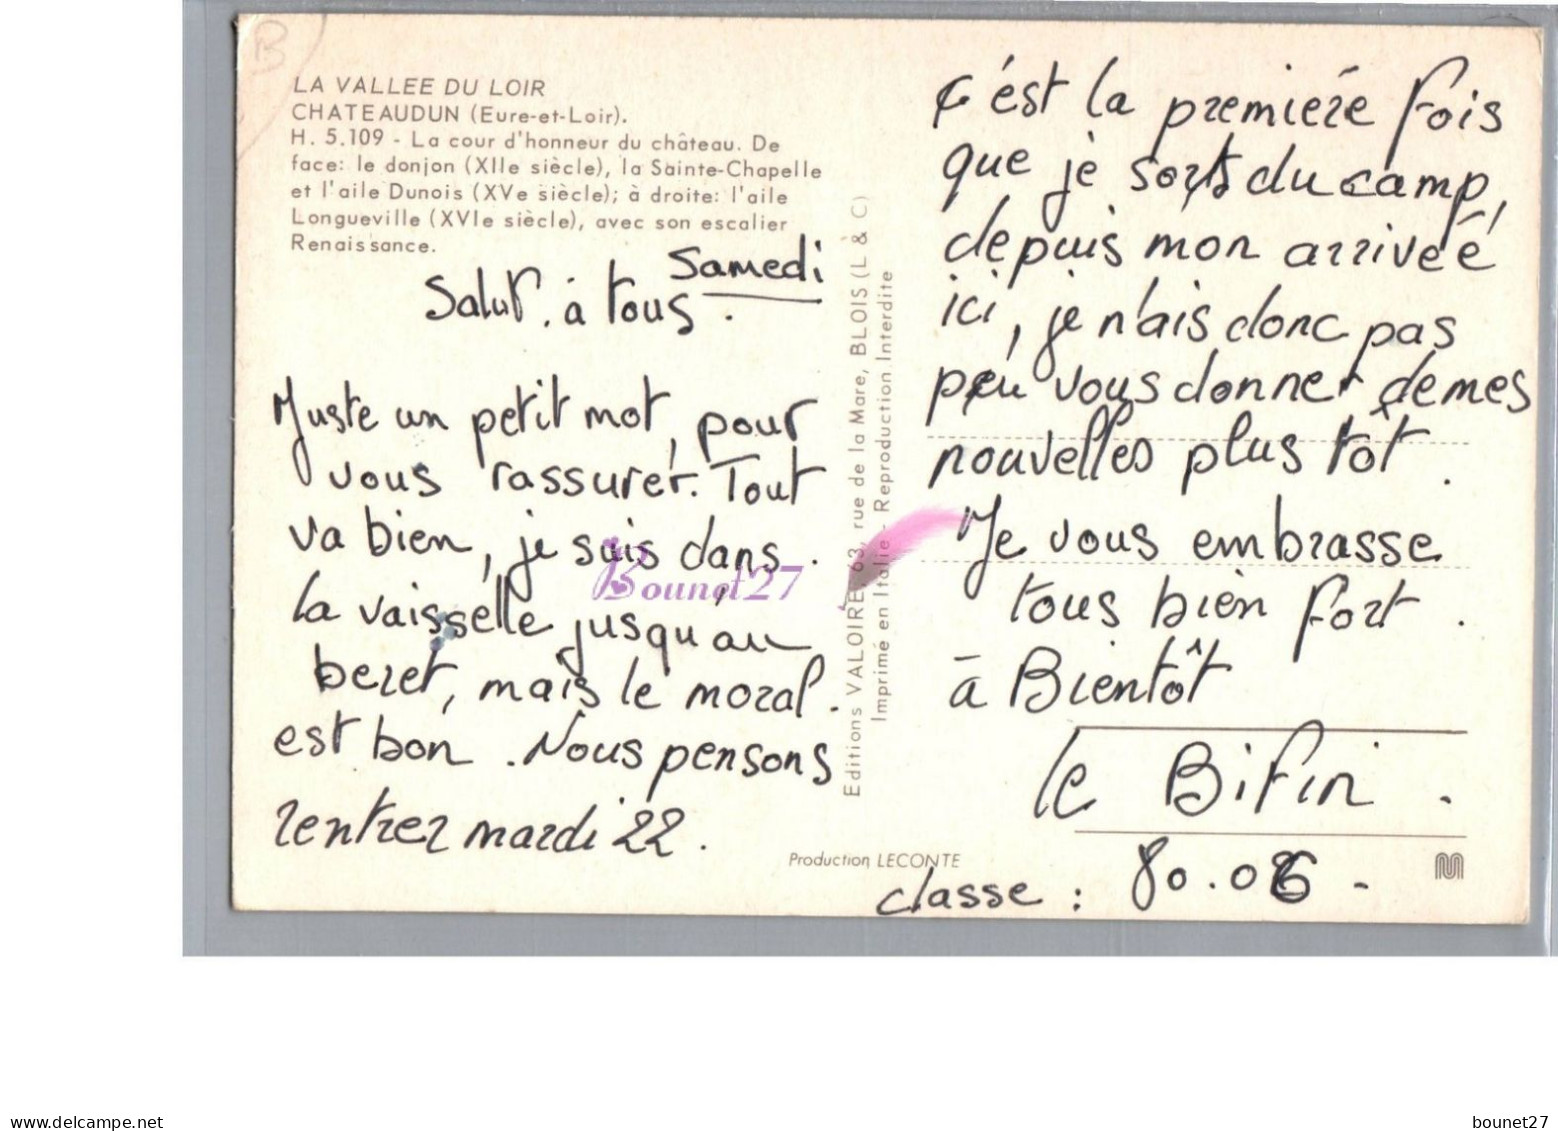 B
LA VALLEE DU LOIR
CHATEAUDUN (Eure-et-Loir).
H. 5.109 - La cour d'honneur du château. De
face: le donjon (XIIe siècle), la Sainte-Chapelle
et l'aile Dunois (XVe siècle); à droite: l'aile
Longueville (XVIe siècle), avec son escalier
Renaissance.
Samedi
Salut. à tous.
Juste un petit mot, pour
vous rassurer. Tout
va bien, je suis dans
la vaisselle jusqu'au
beret, mais le moral.
est bon. Nous pensons
rentrer mardi 22.
Editions VALOIRE, 63, rue de la Mare, BLOIS (L & C)
Imprimé en Italie - Reproduction Interdite
Production LECONTE
c'ést la premiére fois
que je sorts du camp,
depuis mon arriveé
ici, je n'ais donc pas
peu vous donner de mes
nouvelles plus tôt.
Je vous embrasse
tous bien fort.
à Bientôt
le Bifin.
classe : 80.06 -
Bounet27
www.delcampe.net
bounet27